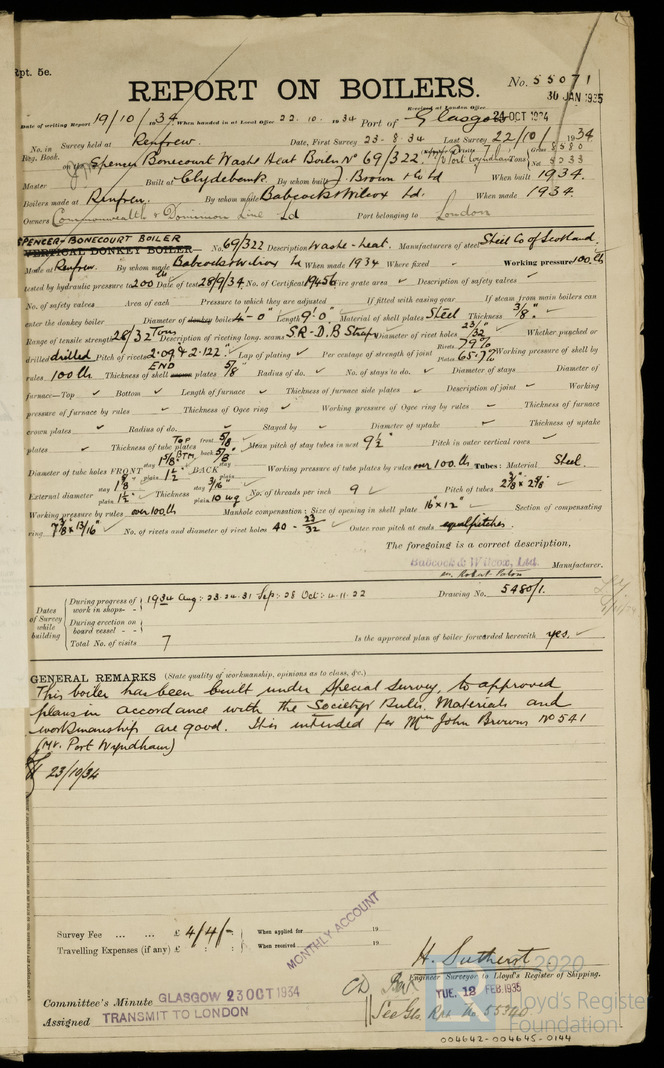 Rpt. 5e.
REPORT ON BOILERS.
No. 55071
30 JAN 1935
Received at London Office
Date of writing Report 19/10/1934 When handed in at Local Office 22.10.1934 Port of Glasgow 24 OCT 1934
No. in Survey held at Renfrew. Date, First Survey 23-8-34 Last Survey 22/10/1934
Reg. Book.
on the Spencer Bonecourt Waste Heat Boiler No 69/322. Port Wyndham Tons Gross 8580 Net 5233
Master Built at Clydebank By whom built J Brown & Co Ld When built 1934
Boilers made at Renfrew. By whom made Babcock & Wilcox Ld. When made 1934.
Owners Commonwealth & Dominion Line Ld Port belonging to London
SPENCER-BONECOURT BOILER
VERTICAL DONKEY BOILER No. 69/322 Description Waste-heat. Manufacturers of steel Steel Co of Scotland.
Made at Renfrew. By whom made Babcock & Wilcox Ld When made 1934 Where fixed Working pressure 100 lb
tested by hydraulic pressure to 200 Date of test 28/9/34 No. of Certificate 19456 Fire grate area Description of safety valves
No. of safety valves Area of each Pressure to which they are adjusted If fitted with easing gear If steam from main boilers can
enter the donkey boiler Diameter of donkey boiler 4'-0" Length 9'0" Material of shell plates Steel Thickness 3/8"
Range of tensile strength 28/32 Tons Description of riveting long. seams S.R-D.B Straps Diameter of rivet holes 23/32" Whether punched or
drilled drilled Pitch of rivets 2.09 & 2.122" Lap of plating Per centage of strength of joint Rivets 79% Plates 65.7% Working pressure of shell by
rules 100 lb Thickness of shell crown plates END 5/8" Radius of do. No. of stays to do. Diameter of stays Diameter of
furnace—Top Bottom Length of furnace Thickness of furnace side plates Description of joint Working
pressure of furnace by rules Thickness of Ogee ring Working pressure of Ogee ring by rules Thickness of furnace
crown plates Radius of do. Stayed by Diameter of uptake Thickness of uptake
plates Thickness of tube plates front 5/8" back 5/8" Mean pitch of stay tubes in nest 9 1/2" Pitch in outer vertical rows
Diameter of tube holes FRONT stay TOP 1 5/8" BTM plain 1 1/2" BACK stay plain Working pressure of tube plates by rules over 100 lb Tubes: Material Steel.
External diameter stay plain 1 1/2" Thickness stay 3/16" plain 10 wg No. of threads per inch 9 Pitch of tubes 2 3/8" x 2 3/8"
Working pressure by rules over 100 lb Manhole compensation: Size of opening in shell plate 16" x 12" Section of compensating
ring 7 3/8" x 13/16" No. of rivets and diameter of rivet holes 40 - 23/32 Outer row pitch at ends equal pitches.
The foregoing is a correct description,
Babcock & Wilcox, Ltd. Manufacturer.
Dates of Survey while building
During progress of work in shops- - 1934 Aug: 23.24.31 Sep: 28 Oct: 4.11.22 Drawing No. 5480/1.
During erection on board vessel - - -
Total No. of visits 7 Is the approved plan of boiler forwarded herewith yes.
GENERAL REMARKS (State quality of workmanship, opinions as to class, &c.)
This boiler has been built under Special Survey, to approved
plans in accordance with the Society's Rules. Materials and
workmanship are good. It is intended for Mssrs John Browns No 541
(M.V. Port Wyndham)
23/10/34
Survey Fee ... ... £ 4/4/- When applied for 19
Travelling Expenses (if any) £ : : When received 19
MONTHLY ACCOUNT
H. Sutherst.
Engineer Surveyor to Lloyd's Register of Shipping.
Committee's Minute GLASGOW 23 OCT 1934
TUE. 12 FEB 1935
Assigned TRANSMIT TO LONDON
See Gls. Rpt No 55340
© 2020
Lloyd's Register
Foundation
004642-004645-0144